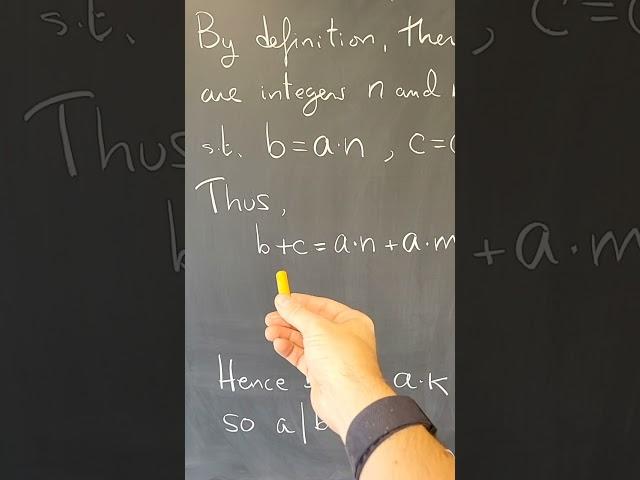 By definition, ther
are integers n and
s.t. b=a·n, c=
Thus,
b+c=a·n+a·m
Hence a·k
so a|b